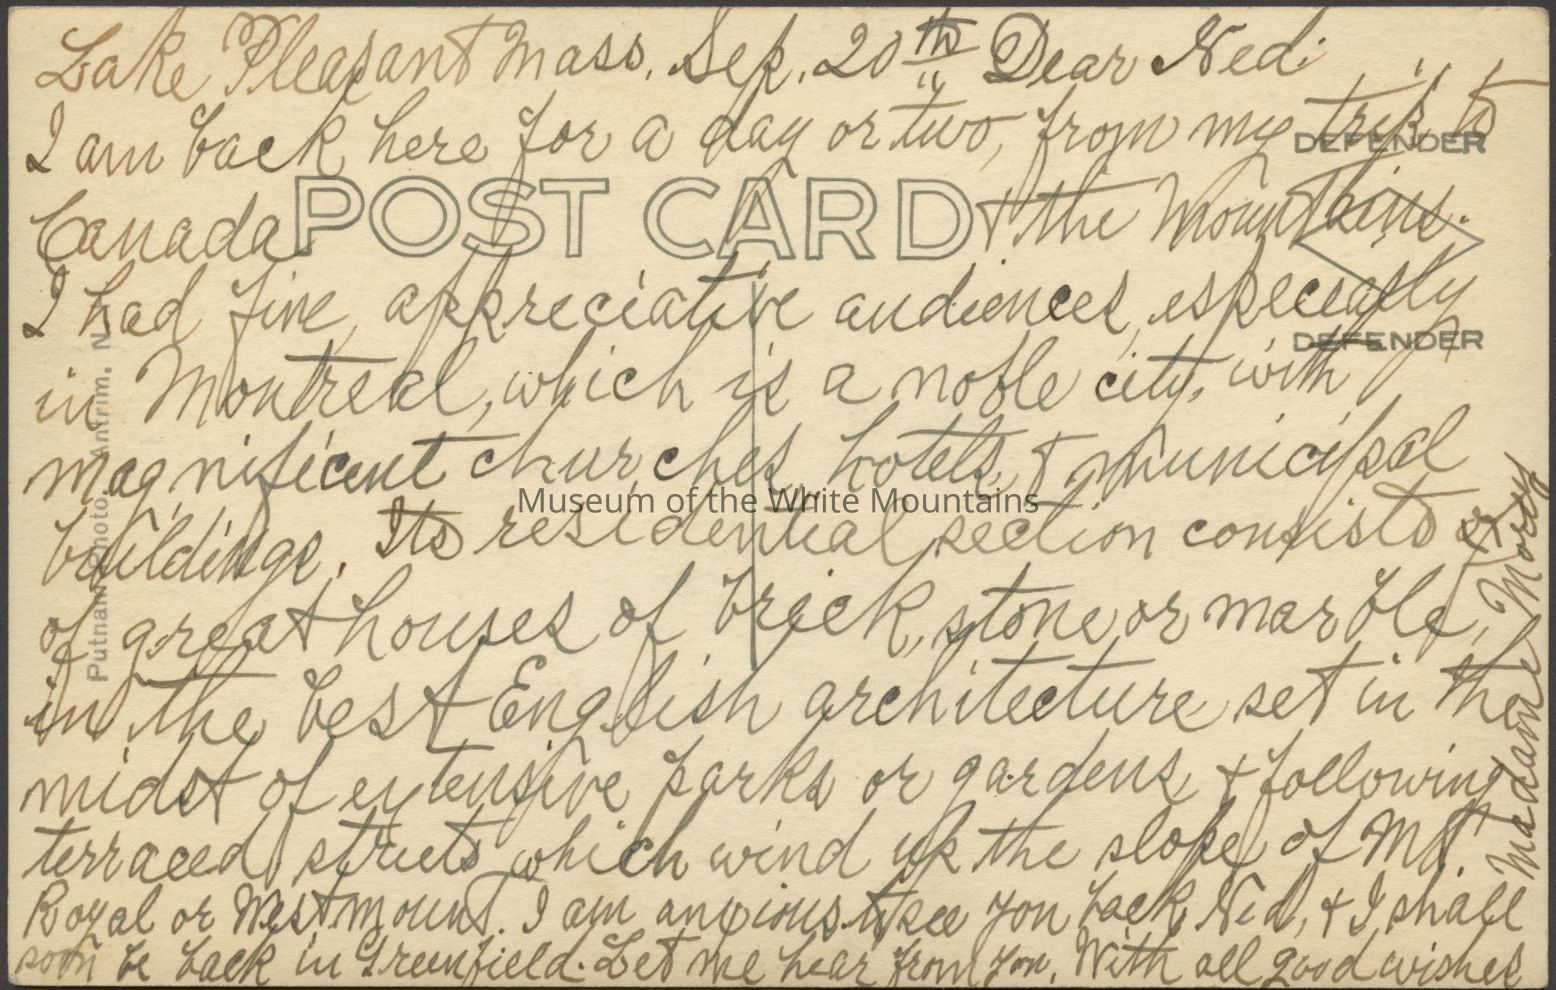 Lake Pleasant Mass. Sep. 20th Dear Ned:
I am back here for a day or two, from my trip to
DEFENDER
POST CARD
Canada & the Mountains.
I had fine, appreciative audiences, especially
DEFENDER
in Montreal, which is a noble city, with
magnificent churches, hotels, & municipal
Museum of the White Mountains
buildings. Its residential section consists
of great houses of brick, stone or marble,
in the best English architecture set in the
midst of extensive parks or gardens & following
terraced streets which wind up the slope of Mt.
Royal or Westmount. I am anxious to see you back, Ned, & I shall
soon be back in Greenfield. Let me hear from you. With all good wishes
Madame Morey
Putnam Photo. Antrim. N.H.